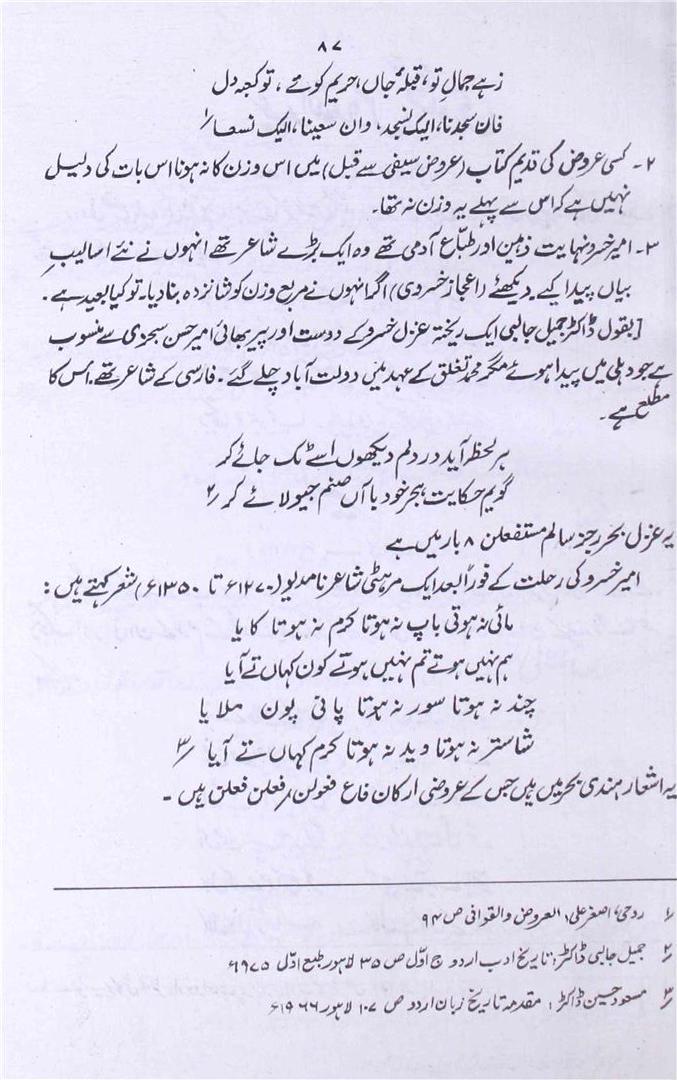 ۸۷
زہے جمالِ تو، قبلۂ جاں، حریم کوئے، تو کعبہ دل
فان سجدنا، الیک نسجد، وان سعینا، الیک نسعا ۱؎
۲۔ کسی عروض کی قدیم کتاب (عروض سیفی سے قبل) میں اس وزن کا نہ ہونا اس بات کی دلیل
نہیں ہے کہ اس سے پہلے یہ وزن نہ تھا۔
۳۔ امیر خسرو نہایت ذہین اور طبّاع آدمی تھے وہ ایک بڑے شاعر تھے انہوں نے نئے اسالیبِ
بیاں پیدا کیے دیکھئے (اعجاز خسروی) اگر انہوں نے مربع وزن کو شانزدہ بنا دیا۔ تو کیا بعید ہے۔
[بقول ڈاکٹر جمیل جالبی ایک ریختہ غزل خسرو کے دوست اور پیر بھائی امیر حسن سجزی سے منسوب
ہے جو دہلی میں پیدا ہوئے مگر محمد تغلق کے عہد میں دولت آباد چلے گئے۔ فارسی کے شاعر تھے۔ اس کا
مطلع ہے۔
ہر لحظہ آید در دلم دیکھوں اسے ٹک جائے کر
گویم حکایت ہجر خود با آں صنم جیو لائے کر ۲؎
یہ غزل بحر رجز سالم مستفعلن ۸ بار میں ہے
امیر خسرو کی رحلت کے فوراً بعد ایک مرہٹی شاعر نامدیو (۱۲۷۰ء تا ۱۳۵۰ء) شعر کہتے ہیں:
مائی نہ ہوتی باپ نہ ہوتا کرم نہ ہوتا کایا
ہم نہیں ہوتے تم نہیں ہوتے کون کہاں تے آیا
چند نہ ہوتا سور نہ ہوتا پانی پون ملایا
شاستر نہ ہوتا وید نہ ہوتا کرم کہاں تے آیا ۳؎
یہ اشعار ہندی بحر میں ہیں جس کے عروضی ارکان فاع فعولن، فعلن فعلن ہیں۔
۱؎ روحی، اصغر علی، العروض والقوافی ص ۹۴
۲؎ جمیل جالبی ڈاکٹر: تاریخ ادب اردو ج اوّل ص ۳۵ لاہور طبع اوّل ۱۹۷۵ء
۳؎ مسعود حسین ڈاکٹر: مقدمہ تاریخ زبان اردو ص ۱۰۷ لاہور ۱۹۶۶ء